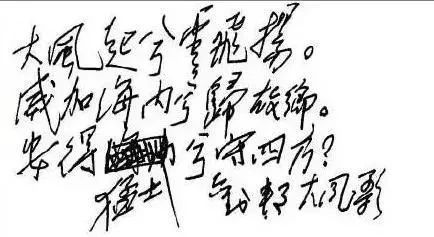 大風起兮雲飛揚。
威加海内兮歸故鄉。
安得猛士兮守四方？
劉邦大風歌